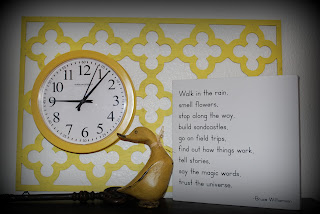 12
1
2
3
4
5
6
7
8
9
10
11
Walk in the rain,
smell flowers,
stop along the way,
build sandcastles,
go on field trips,
find out how things work,
tell stories,
say the magic words,
trust the universe.
Bruce Williamson